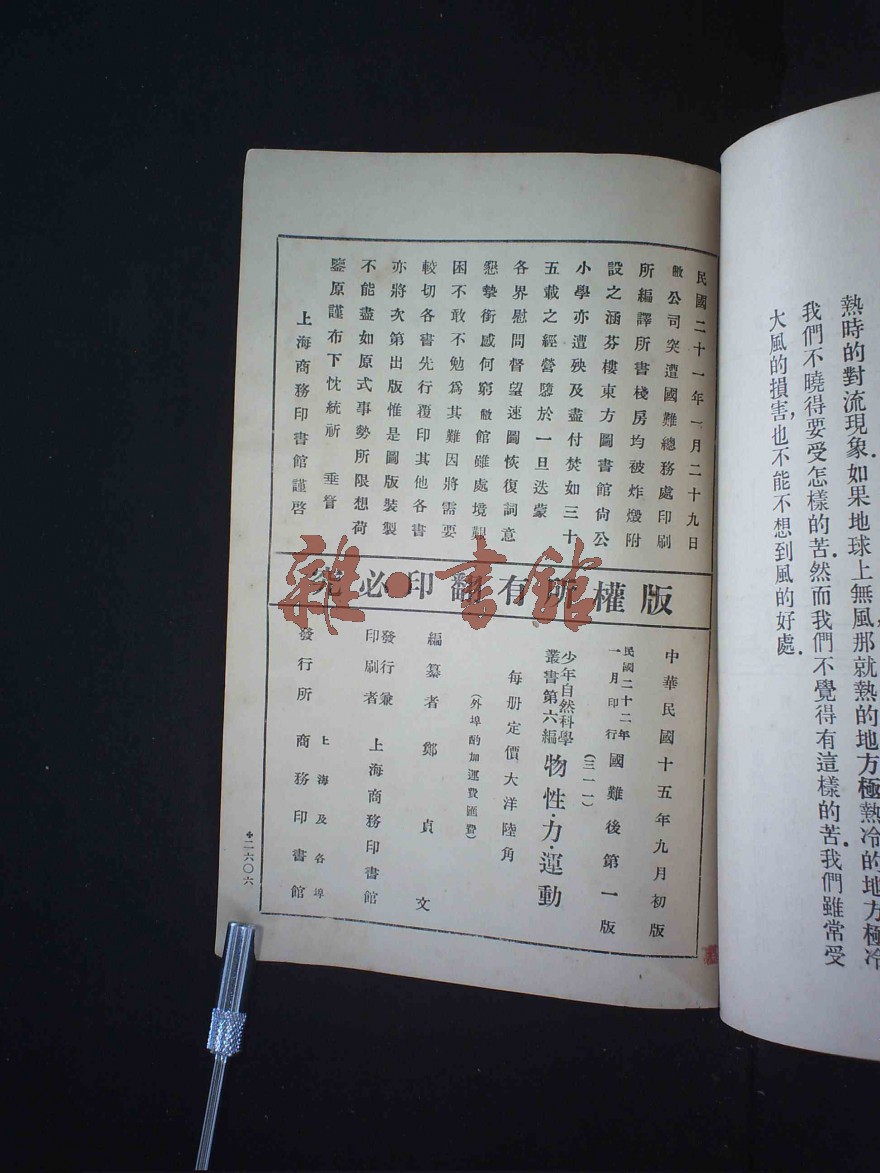 熱時的對流現象.如果地球上無風,那就熱的地方極熱冷的地方極冷
我們不曉得要受怎樣的苦.然而我們不覺得有這樣的苦.我們雖常受
大風的損害,也不能不想到風的好處.
民國二十一年一月二十九日
敝公司突遭國難總務處印刷
所編譯所書棧房均被炸燬附
設之涵芬樓東方圖書館尙公
小學亦遭殃及盡付焚如三十
五載之經營隳於一旦迭蒙
各界慰問督望速圖恢復詞意
懇摯銜感何窮敝館雖處境艱
困不敢不勉爲其難因將需要
較切各書先行覆印其他各書
亦將次第出版惟是圖版裝製
不能盡如原式事勢所限想荷
鑒原謹布下忱統祈 垂詧
上海商務印書館謹啓
版權所有翻印必究
中華民國十五年九月初版
民國二十二年一月印行 國難後第一版
(三一一)
少年自然科學叢書第六編 物性·力·運動
每册定價大洋陸角
(外埠酌加運費匯費)
編纂者 鄭貞文
發行兼印刷者 上海商務印書館
發行所 上海及各埠 商務印書館
二六〇六
雜·書館